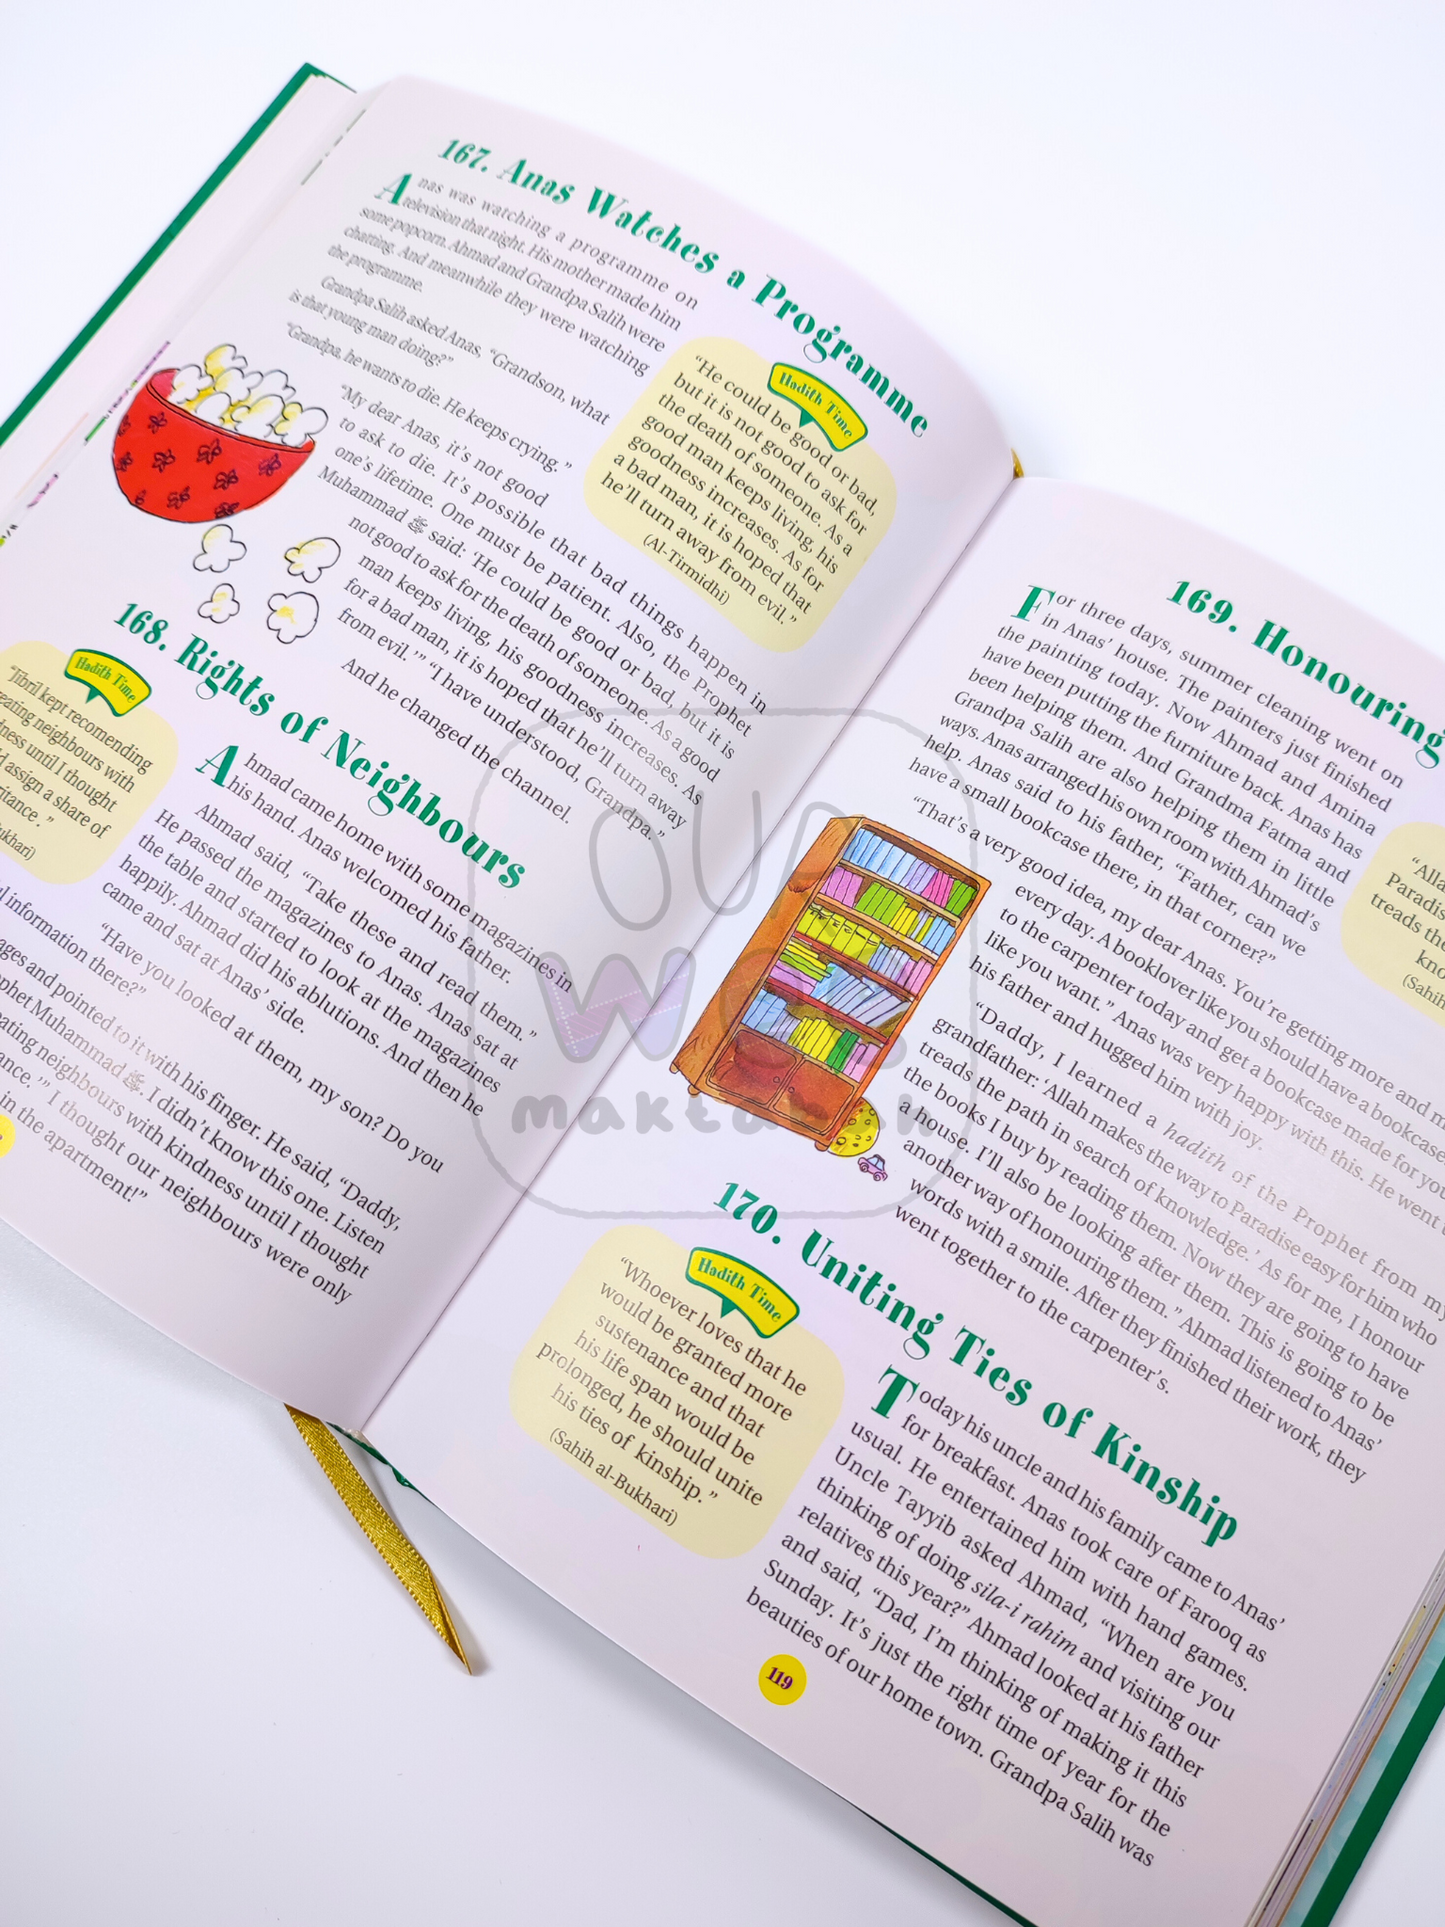 167. Anas Watches a Programme
Anas was watching a programme on
television that night. His mother made him
some popcorn. Ahmad and Grandpa Salih were
chatting. And meanwhile they were watching
the programme.
Grandpa Salih asked Anas, "Grandson, what
is that young man doing?"
"Grandpa, he wants to die. He keeps crying."
"My dear Anas, it's not good
to ask to die. It's possible that bad things happen in
one's lifetime. One must be patient. Also, the Prophet
Muhammad ﷺ said: 'He could be good or bad, but it is
not good to ask for the death of someone. As a good
man keeps living, his goodness increases. As
for a bad man, it is hoped that he'll turn away
from evil.'" "I have understood, Grandpa."
And he changed the channel.
Hadith Time
"He could be good or bad,
but it is not good to ask for
the death of someone. As a
good man keeps living, his
goodness increases. As for
a bad man, it is hoped that
he'll turn away from evil."
(Al-Tirmidhi)
168. Rights of Neighbours
Hadith Time
"Jibril kept recomending
eating neighbours with
dness until I thought
d assign a share of
itance."
Bukhari)
Ahmad came home with some magazines in
his hand. Anas welcomed his father.
Ahmad said, "Take these and read them."
He passed the magazines to Anas. Anas sat at
the table and started to look at the magazines
happily. Ahmad did his ablutions. And then he
came and sat at Anas' side.
"Have you looked at them, my son? Do you
information there?"
ages and pointed to it with his finger. He said, "Daddy,
ophet Muhammad ﷺ. I didn't know this one. Listen
eating neighbours with kindness until I thought
ance.'" I thought our neighbours were only
in the apartment!"
169. Honouring
For three days, summer cleaning went on
in Anas' house. The painters just finished
the painting today. Now Ahmad and Amina
have been putting the furniture back. Anas has
been helping them. And Grandma Fatma and
Grandpa Salih are also helping them in little
ways. Anas arranged his own room with Ahmad's
help. Anas said to his father, "Father, can we
have a small bookcase there, in that corner?"
"That's a very good idea, my dear Anas. You're getting more and m
every day. A booklover like you should have a bookcase
to the carpenter today and get a bookcase made for you
like you want." Anas was very happy with this. He went
his father and hugged him with joy.
"Daddy, I learned a hadith of the Prophet from my
grandfather: 'Allah makes the way to Paradise easy for him who
treads the path in search of knowledge.' As for me, I honour
the books I buy by reading them. Now they are going to have
a house. I'll also be looking after them. This is going to be
another way of honouring them." Ahmad listened to Anas'
words with a smile. After they finished their work, they
went together to the carpenter's.
"Alla
Paradis
treads the
kno
(Sahih
170. Uniting Ties of Kinship
Hadith Time
"Whoever loves that he
would be granted more
sustenance and that
his life span would be
prolonged, he should unite
his ties of kinship."
(Sahih al-Bukhari)
Today his uncle and his family came to Anas'
for breakfast. Anas took care of Farooq as
usual. He entertained him with hand games.
Uncle Tayyib asked Ahmad, "When are you
thinking of doing sila-i rahim and visiting our
relatives this year?" Ahmad looked at his father
and said, "Dad, I'm thinking of making it this
Sunday. It's just the right time of year for the
beauties of our home town. Grandpa Salih was
119
OUR
maktabah